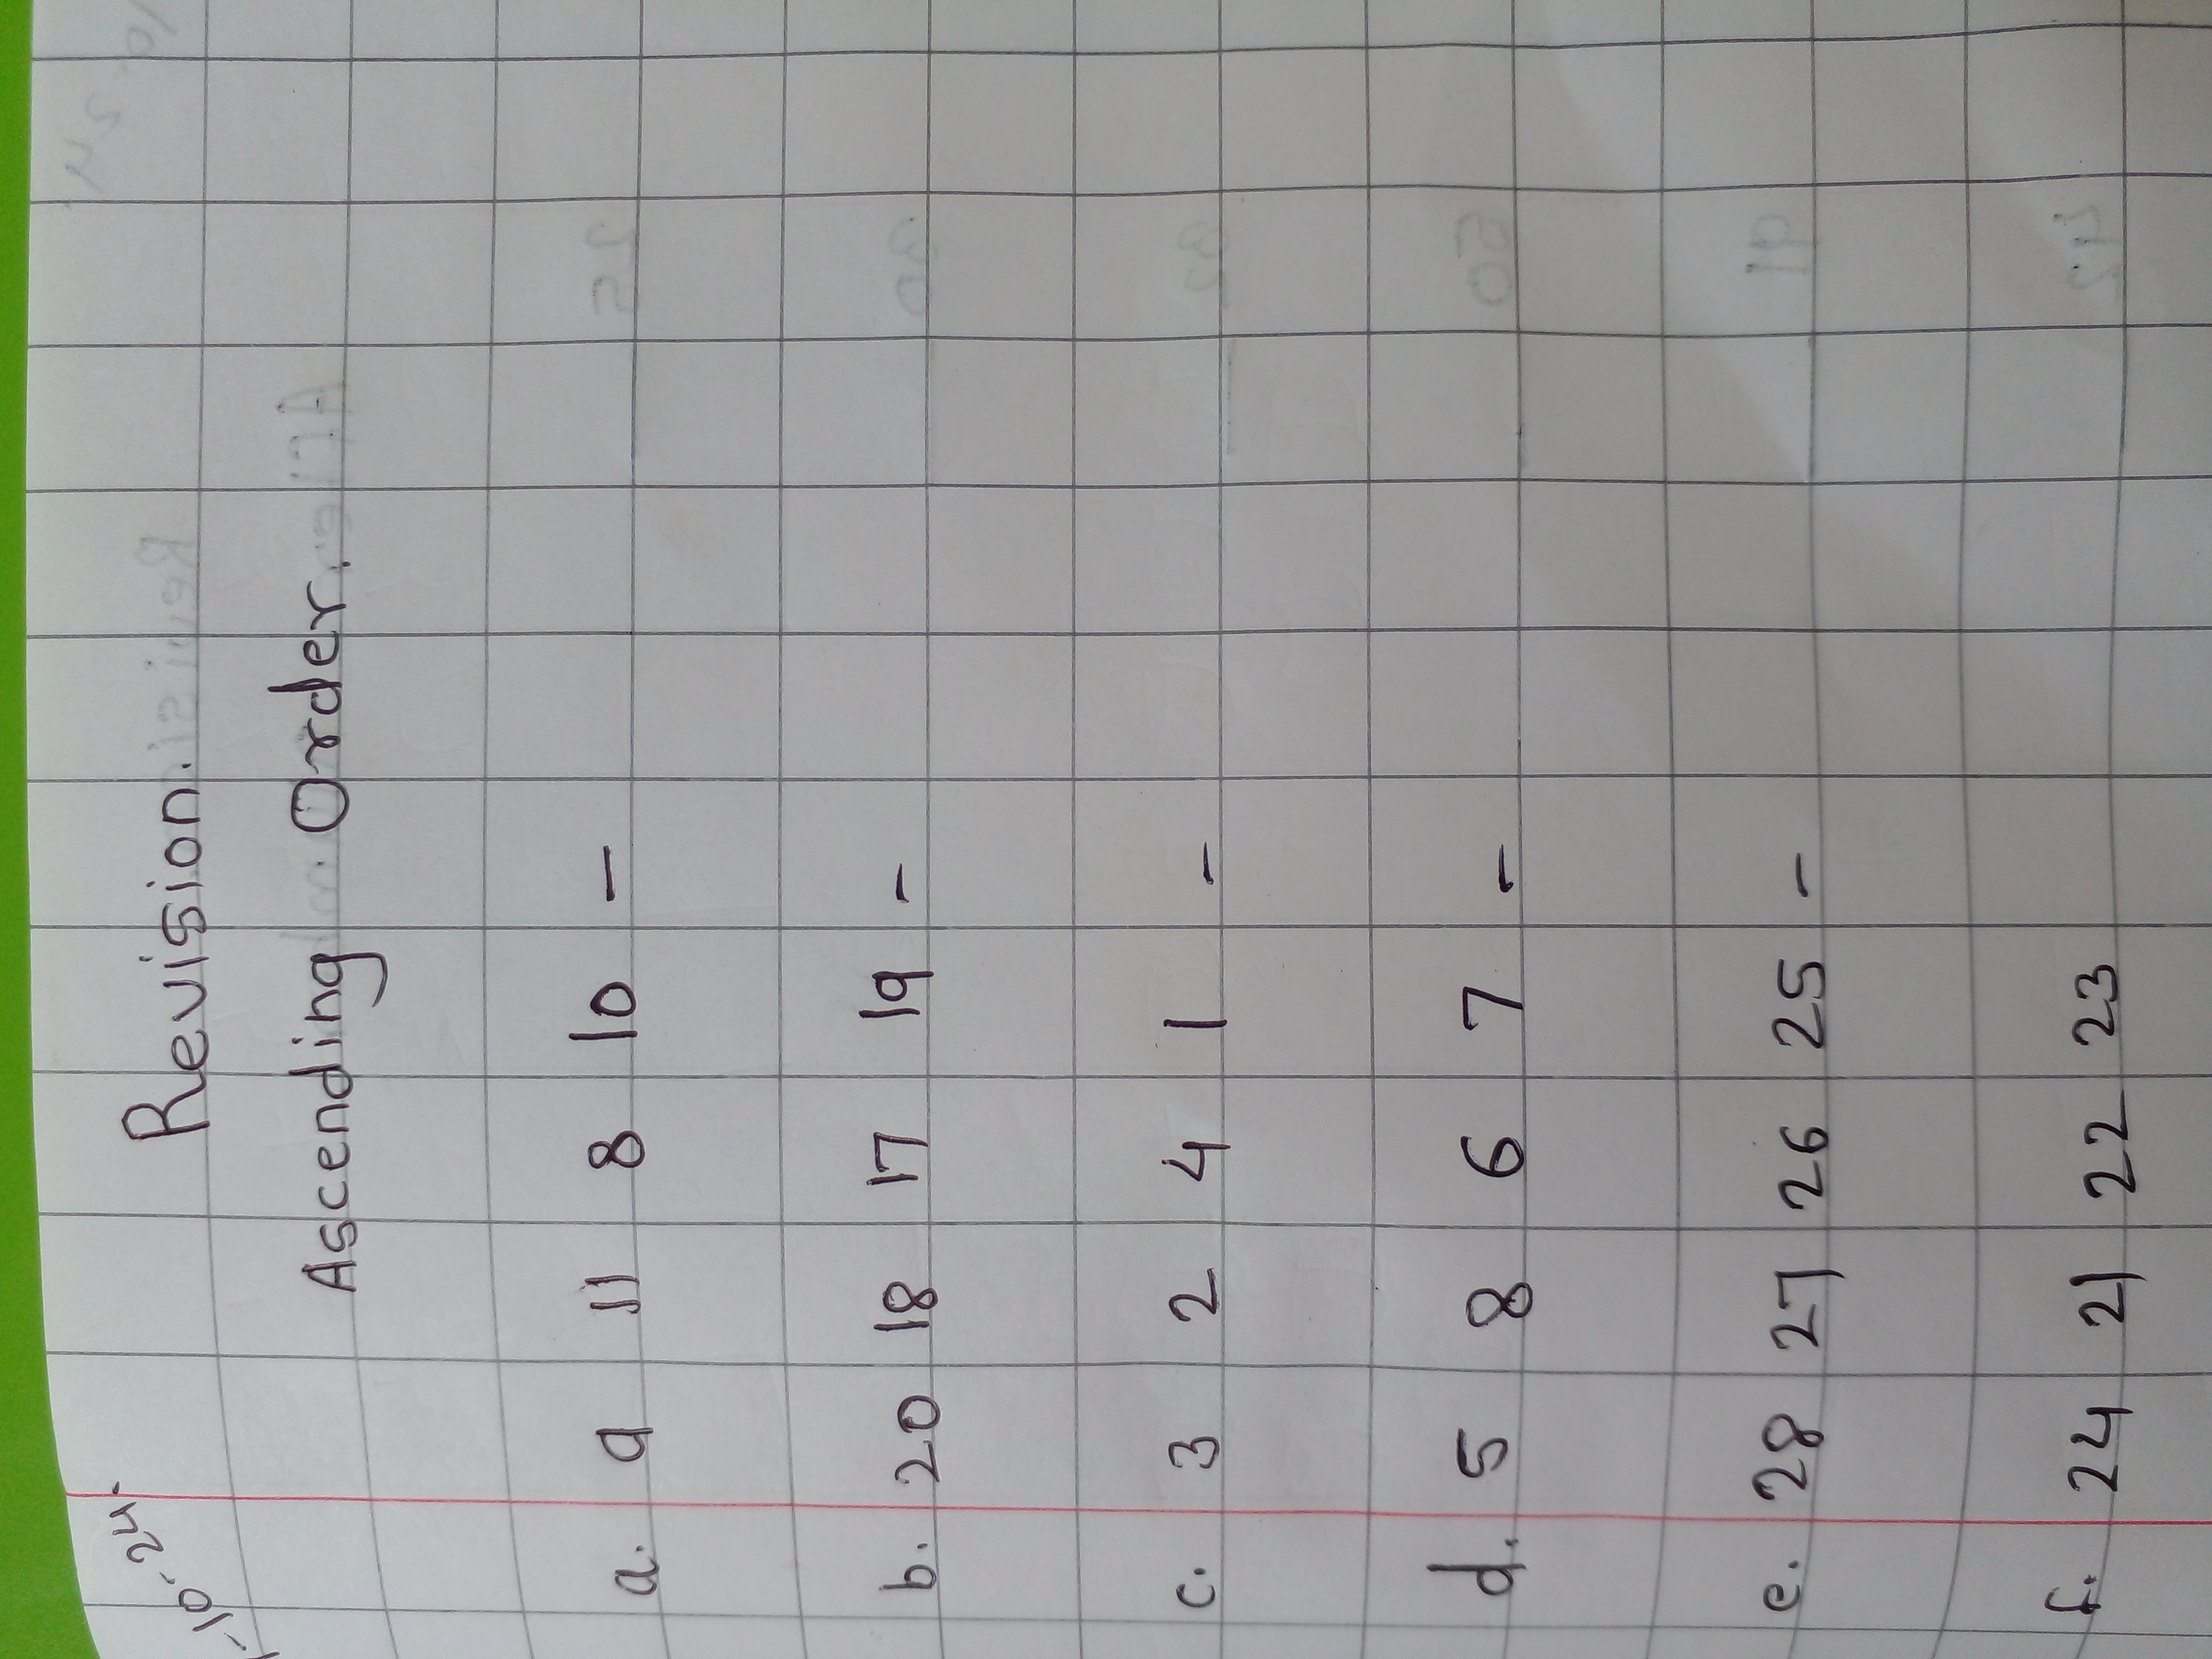 10. 24.
Revision.
Ascending Order.
a. 9 11 8 10 –
b. 20 18 17 19 –
c. 3 2 4 1 –
d. 5 8 6 7 –
e. 28 27 26 25 –
f. 24 21 22 23